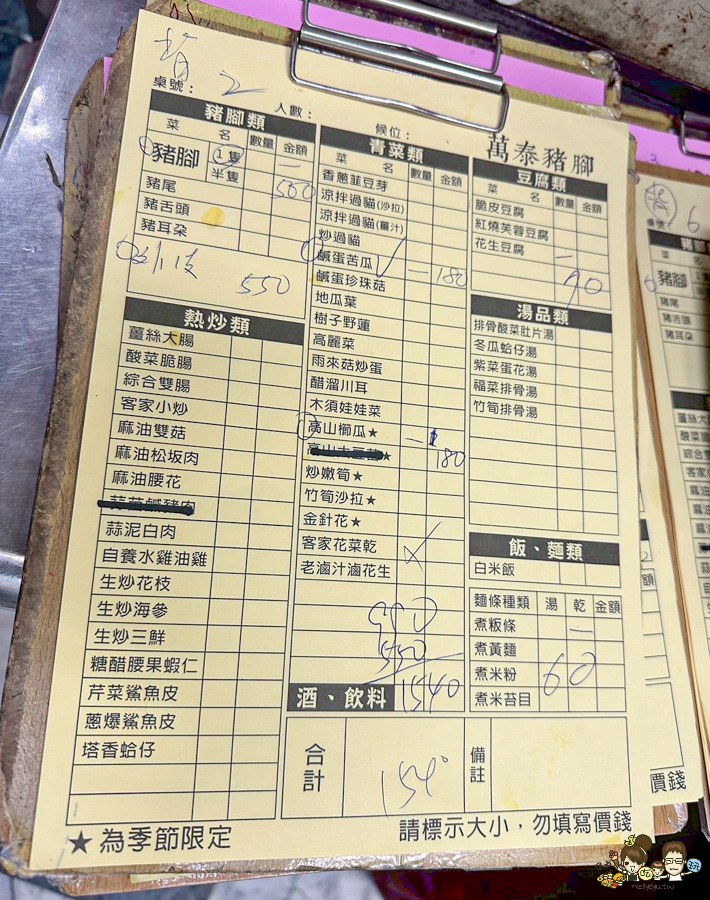 桌號： 2
人數：
候位：
萬泰豬腳
豬腳類
菜 名 數量 金額
豬腳 1隻 半隻 一 500
豬尾
豬舌頭
豬耳朵
550
熱炒類
薑絲大腸
酸菜脆腸
綜合雙腸
客家小炒
麻油雙菇
麻油松坂肉
麻油腰花
蒜泥白肉
自養水雞油雞
生炒花枝
生炒海參
生炒三鮮
糖醋腰果蝦仁
芹菜鯊魚皮
蔥爆鯊魚皮
塔香蛤仔
青菜類
菜 名 數量 金額
香蔥韮豆芽
涼拌過貓(沙拉)
涼拌過貓(薑汁)
炒過貓
鹹蛋苦瓜 一 180
鹹蛋珍珠菇
地瓜葉
樹子野蓮
高麗菜
雨來菇炒蛋
醋溜川耳
木須娃娃菜
高山櫛瓜★ 一 180
炒嫩筍★
竹筍沙拉★
金針花★
客家花菜乾
老滷汁滷花生
990
550
酒、飲料 1540
豆腐類
菜 名 數量 金額
脆皮豆腐
紅燒芙蓉豆腐
花生豆腐 一 90
湯品類
排骨酸菜肚片湯
冬瓜蛤仔湯
紫菜蛋花湯
福菜排骨湯
竹筍排骨湯
飯、麵類
白米飯
麵條種類 湯 乾 金額
煮粄條 一
煮黃麵
煮米粉 60
煮米苔目
合計 1540
備註
★為季節限定
請標示大小，勿填寫價錢
6
豬腳
豬尾
豬舌頭
豬耳朵
價錢
nellydyu.tw